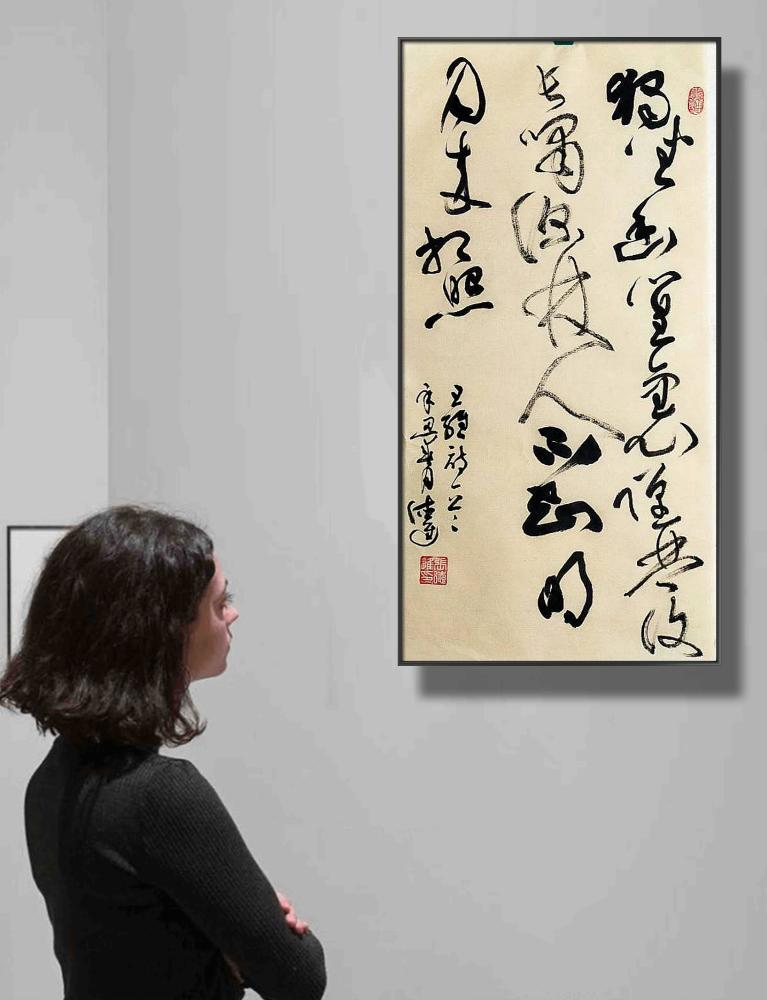 獨坐幽篁裏彈琴復
長嘯深林人不知明
月來相照
王維詩一首
辛丑